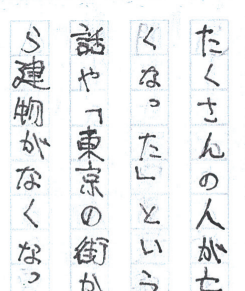 たくさんの人が亡
くなった」という
話や「東京の街か
ら建物がなくなっ